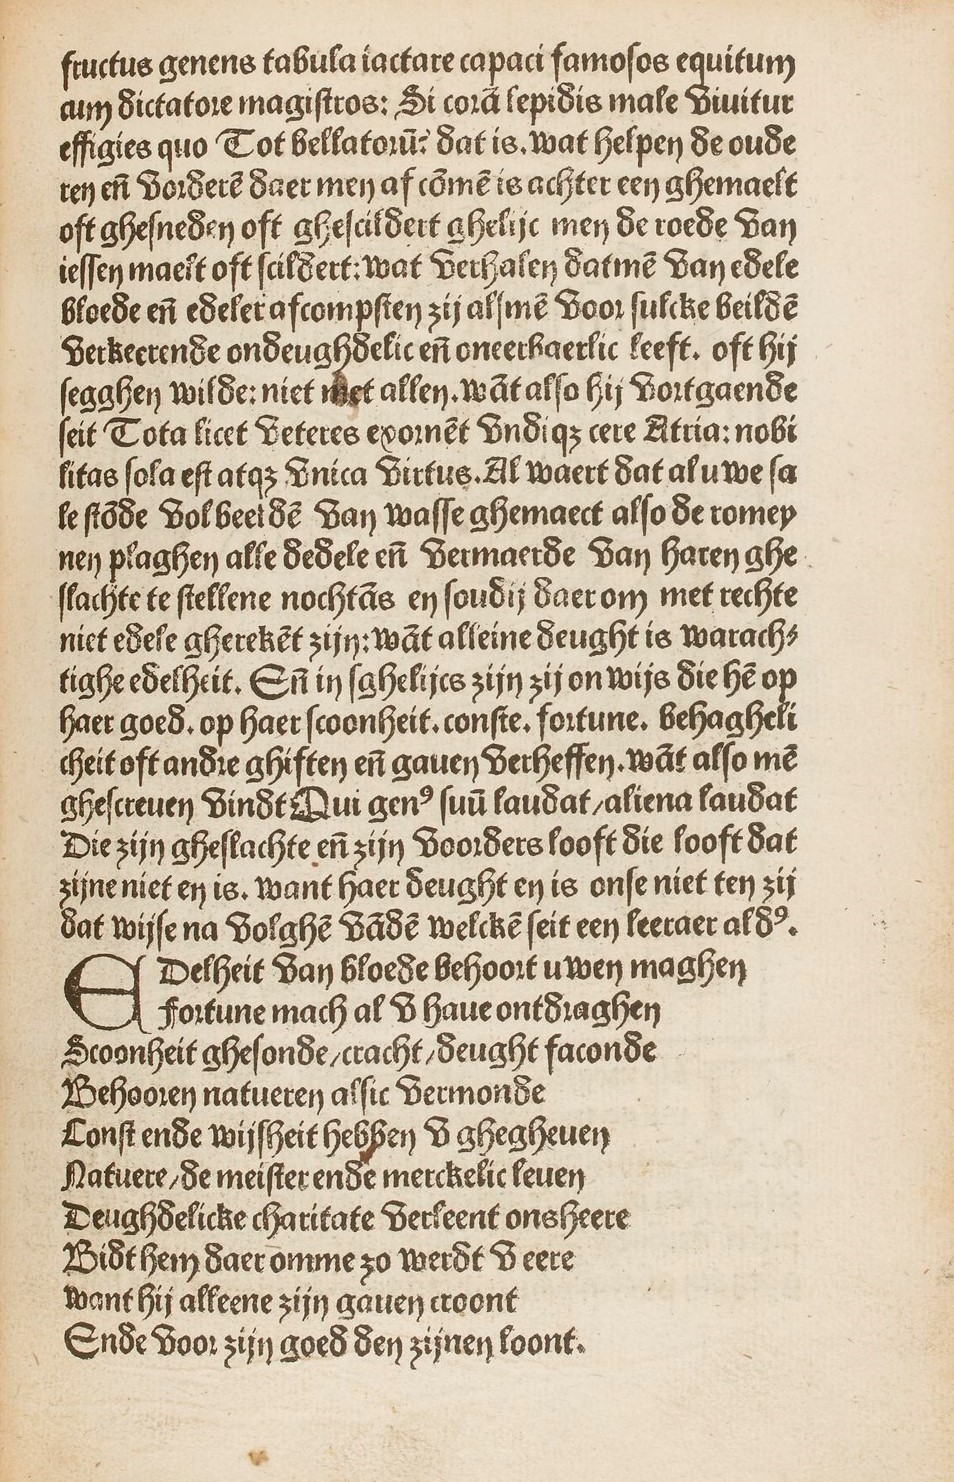 fructus genens tabula iactare capaci famosos equitum
cum dictatore magistros: Si corā lepidis male viuitur
effigies quo Tot bellatorū: dat is. wat helpen de oude
ren eñ vorderē daer men af cōmē is achter een ghemaelt
oft ghesneden oft ghescildert ghelijc men de roede van
iessen maelt oft scildert: wat verhalen datmē van edele
bloede eñ edeler afcompsten zij alsmē voor sulcke beildē
verkeerende ondeughdelic eñ oneerbaerlic leeft. oft hij
segghen wilde: niet met allen. wāt also hij vortgaende
seit Tota licet veteres exornēt vndiqʒ cere Atria: nobi
litas sola est atqʒ vnica virtus. Al waert dat al uwe sa
le stōde vol beeldē van wasse ghemaect also de romey
nen plaghen alle dedele eñ vermaerde van haren ghe
slachte te stellene nochtās en soudij daer om met rechte
niet edele gherekēt zijn: wāt alleine deught is warach⸗
tighe edelheit. Eñ in sghelijcs zijn zij onwijs die hē op
haer goed. op haer scoonheit. conste. fortune. behagheli
cheit oft andre ghiften eñ gauen verheffen. wāt also mē
ghescreuen vindt Qui genꝰ suū laudat/aliena laudat
Die zijn gheslachte eñ zijn voorders looft die looft dat
zijne niet en is. want haer deught en is onse niet ten zij
dat wijse na volghē vādē welckē seit een leeraer aldꝰ.
EDelheit van bloede behoort uwen maghen
Fortune mach al v haue ontdraghen
Scoonheit ghesonde/cracht/deught faconde
Behooren natueren alsic vermonde
Const ende wijsheit hebben v ghegheuen
Natuere/de meister ende merckelic leuen
Deughdelicke charitate verleent ons heere
Bidt hem daer omme zo werdt v eere
want hij alleene zijn gauen croont
Ende voor zijn goed den zijnen loont.